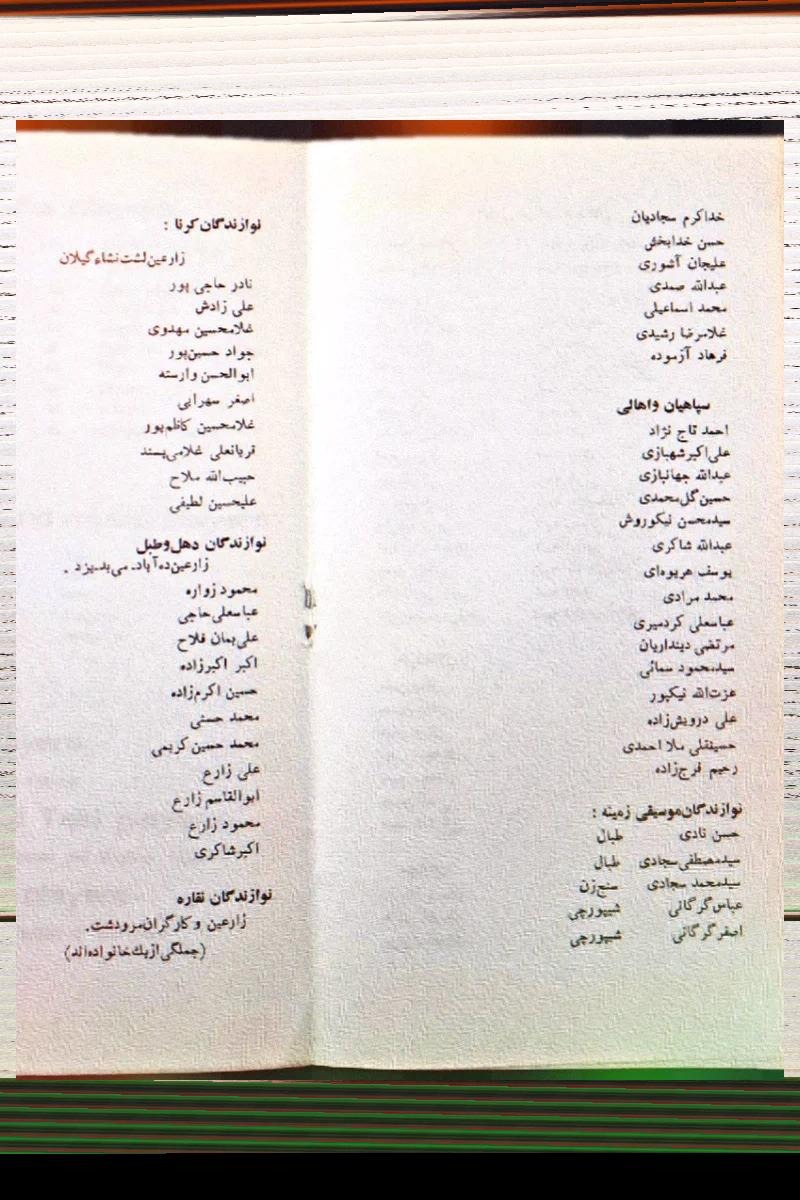 خداکرم سجادیان
حسن خدابخش
علیجان آشوری
عبدالله صمدی
محمد اسماعیلی
غلامرضا رشیدی
فرهاد آزموده
سپاهیان واهالی
احمد تاج نژاد
علی‌اکبرشهبازی
عبدالله جهانبازی
حسین‌گل‌محمدی
سیدمحسن نیکوروش
عبدالله شاکری
یوسف هریوه‌ای
محمد مرادی
عباسعلی کردمیری
مرتضی دینداریان
سیدمحمود سمائی
عزت‌الله نیکپور
علی درویش‌زاده
حسینقلی ملا احمدی
رحیم فرج‌زاده
نوازندگان‌موسیقی زمینه :
حسن نادی طبال
سیدمصطفی‌سجادی طبال
سیدمحمد سجادی سنج‌زن
عباس‌گرگانی شیپورچی
اصغرگرگانی شیپورچی
نوازندگان‌کرنا :
زارعین‌لشت‌نشاءگیلان
نادر حاجی پور
علی زادش
غلامحسین مهدوی
جواد حسین‌پور
ابوالحسن وارسته
اصغر سهرابی
غلامحسین کاظم‌پور
قربانعلی غلامی‌پسند
حبیب‌الله سلاح
علیحسین لطیفی
نوازندگان دهل‌وطبل
زارعین‌ده‌آباد-میبد-یزد .
محمود زواره
عباسعلی‌حاجی
علی‌بمان فلاح
اکبر اکبرزاده
حسین اکرم‌زاده
محمد حسنی
محمد حسین کریمی
علی زارع
ابوالقاسم زارع
محمود زارع
اکبرشاکری
نوازندگان نقاره
زارعین و کارگران‌مرودشت.
(جملگی‌ازیك‌خانواده‌اند)